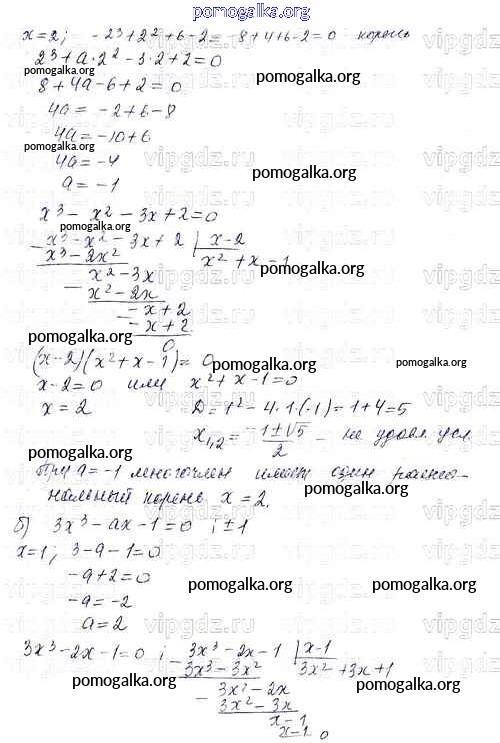 pomogalka.org
x=2; -2³+2²+6-2=-8+4+6-2=0 корень
2³+a·2²-3·2+2=0
pomogalka.org
8+4a-6+2=0
pomogalka.org
4a=-2+6-8
4a=-10+6
pomogalka.org
4a=-4
pomogalka.org
a=-1
x³-x²-3x+2=0
pomogalka.org
x³-x²-3x+2 | x-2
x³-2x² x²+x-1
x²-3x
pomogalka.org
x²-2x
-x+2
-x+2
pomogalka.org
0
(x-2)(x²+x-1)=0
pomogalka.org
pomogalka.org
x-2=0 или x²+x-1=0
x=2 D=1²-4·1·(-1)=1+4=5
x₁,₂=-1±√5/2 - не удовл. усл.
pomogalka.org
При a=-1 многочлен имеет один рацио-
нальный корень x=2.
pomogalka.org
б) 3x³-ax-1=0 ; ±1
x=1; 3-a-1=0
-a+2=0
pomogalka.org
pomogalka.org
-a=-2
a=2
3x³-2x-1=0 ; 3x³-2x-1 | x-1
3x³-3x² 3x²+3x+1
pomogalka.org
3x²-2x
pomogalka.org
3x²-3x
x-1
x-1
0